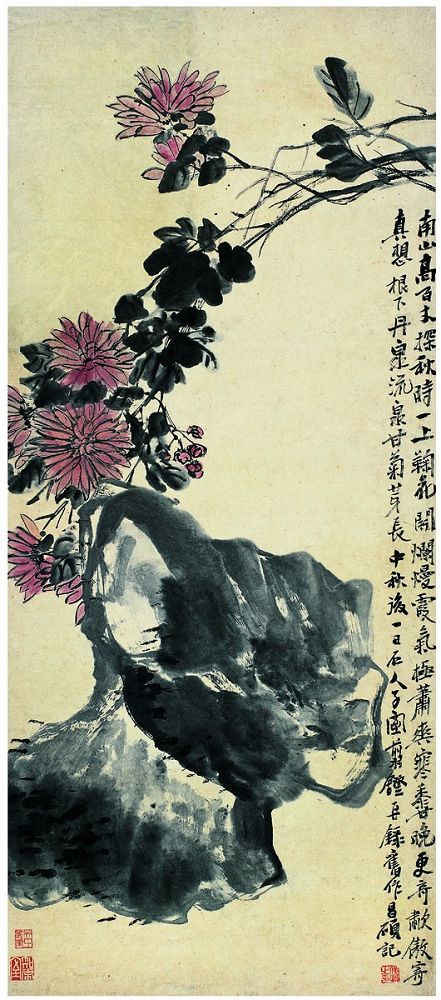 南山高百丈探秋時一上鞠花開爛熳霞氣極蕭爽寒香晚更奇歗傲寄
真想根下丹泉流泉甘菊芽長中秋後一日石人子室剪鐙再錄舊作昌碩記